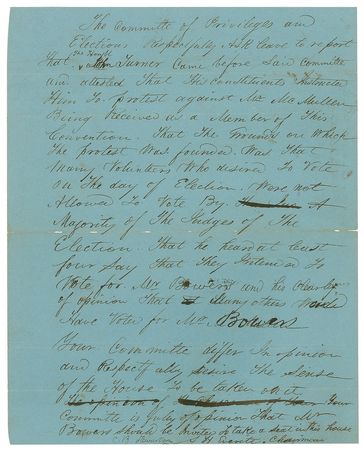 The Committe of Privileges and
Elections Respecfuly Ask leave to report
The Honble
That Turner Came before Said Committe
and attested That His constituents Instructed
Him To protest against Mr. McMullen
Being Received as a Member of This
Convention. That The Ground on Which
The protest Was founded Was That
Many Volunters Who desired To Vote
on The day of Election Were not
Allowed To Vote By A
Majority of The Judges of The
Election. That he heard at least
four Say that They Intended To
Vote for Mr Bowers and his clearly
of opinion That Many others Would
Have Vote for Mr. Bowers
Your Committe differ In opinion
and Respectfully desire The Sense
of the House To be taken on it
Your
Committe is of opinion That Mr
Bowers Should be Invited to take a seat in this house
S H Everitt, Chairman